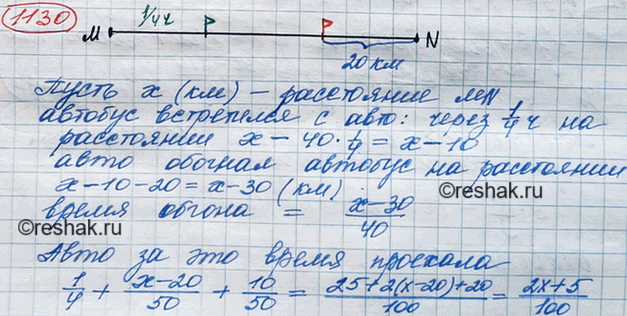 1130
1/4ч P P
M N
20 км
Пусть x (км) – расстояние MN
автобус встретился с авто: через 1/4 ч на
расстоянии x – 40 · 1/4 = x – 10
авто обогнал автобус на расстоянии
x – 10 – 20 = x – 30 (км)
©reshak.ru
время обгона = x–30/40
©reshak.ru
Авто за это время проехала
1/4 + x–20/50 + 10/50 = 25+2(x–20)+20/100 = 2x+5/100